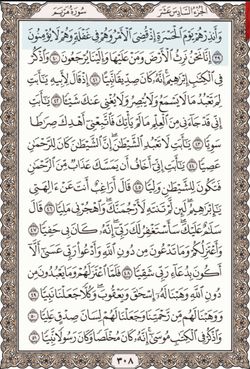 الجُزْءُ السَّادِسَ عَشَرَ سُورَةُ مَرْيَمَ
وَأَنذِرْهُمْ يَوْمَ ٱلْحَسْرَةِ إِذْ قُضِىَ ٱلْأَمْرُ وَهُمْ فِى غَفْلَةٍ وَهُمْ لَا يُؤْمِنُونَ
٣٩ إِنَّا نَحْنُ نَرِثُ ٱلْأَرْضَ وَمَنْ عَلَيْهَا وَإِلَيْنَا يُرْجَعُونَ ٤٠ وَٱذْكُرْ
فِى ٱلْكِتَٰبِ إِبْرَٰهِيمَ إِنَّهُۥ كَانَ صِدِّيقًا نَّبِيًّا ٤١ إِذْ قَالَ لِأَبِيهِ يَٰٓأَبَتِ
لِمَ تَعْبُدُ مَا لَا يَسْمَعُ وَلَا يُبْصِرُ وَلَا يُغْنِى عَنكَ شَيْـًٔا ٤٢ يَٰٓأَبَتِ
إِنِّى قَدْ جَآءَنِى مِنَ ٱلْعِلْمِ مَا لَمْ يَأْتِكَ فَٱتَّبِعْنِىٓ أَهْدِكَ صِرَٰطًا
سَوِيًّا ٤٣ يَٰٓأَبَتِ لَا تَعْبُدِ ٱلشَّيْطَٰنَ إِنَّ ٱلشَّيْطَٰنَ كَانَ لِلرَّحْمَٰنِ
عَصِيًّا ٤٤ يَٰٓأَبَتِ إِنِّىٓ أَخَافُ أَن يَمَسَّكَ عَذَابٌ مِّنَ ٱلرَّحْمَٰنِ
فَتَكُونَ لِلشَّيْطَٰنِ وَلِيًّا ٤٥ قَالَ أَرَاغِبٌ أَنتَ عَنْ ءَالِهَتِى
يَٰٓإِبْرَٰهِيمُ لَئِن لَّمْ تَنتَهِ لَأَرْجُمَنَّكَ وَٱهْجُرْنِى مَلِيًّا ٤٦ قَالَ
سَلَٰمٌ عَلَيْكَ سَأَسْتَغْفِرُ لَكَ رَبِّىٓ إِنَّهُۥ كَانَ بِى حَفِيًّا ٤٧
وَأَعْتَزِلُكُمْ وَمَا تَدْعُونَ مِن دُونِ ٱللَّهِ وَأَدْعُوا۟ رَبِّى عَسَىٰٓ أَلَّآ
أَكُونَ بِدُعَآءِ رَبِّى شَقِيًّا ٤٨ فَلَمَّا ٱعْتَزَلَهُمْ وَمَا يَعْبُدُونَ مِن
دُونِ ٱللَّهِ وَهَبْنَا لَهُۥٓ إِسْحَٰقَ وَيَعْقُوبَ وَكُلًّا جَعَلْنَا نَبِيًّا
٤٩ وَوَهَبْنَا لَهُم مِّن رَّحْمَتِنَا وَجَعَلْنَا لَهُمْ لِسَانَ صِدْقٍ عَلِيًّا
٥٠ وَٱذْكُرْ فِى ٱلْكِتَٰبِ مُوسَىٰٓ إِنَّهُۥ كَانَ مُخْلَصًا وَكَانَ رَسُولًا نَّبِيًّا ٥١
٣٠٨